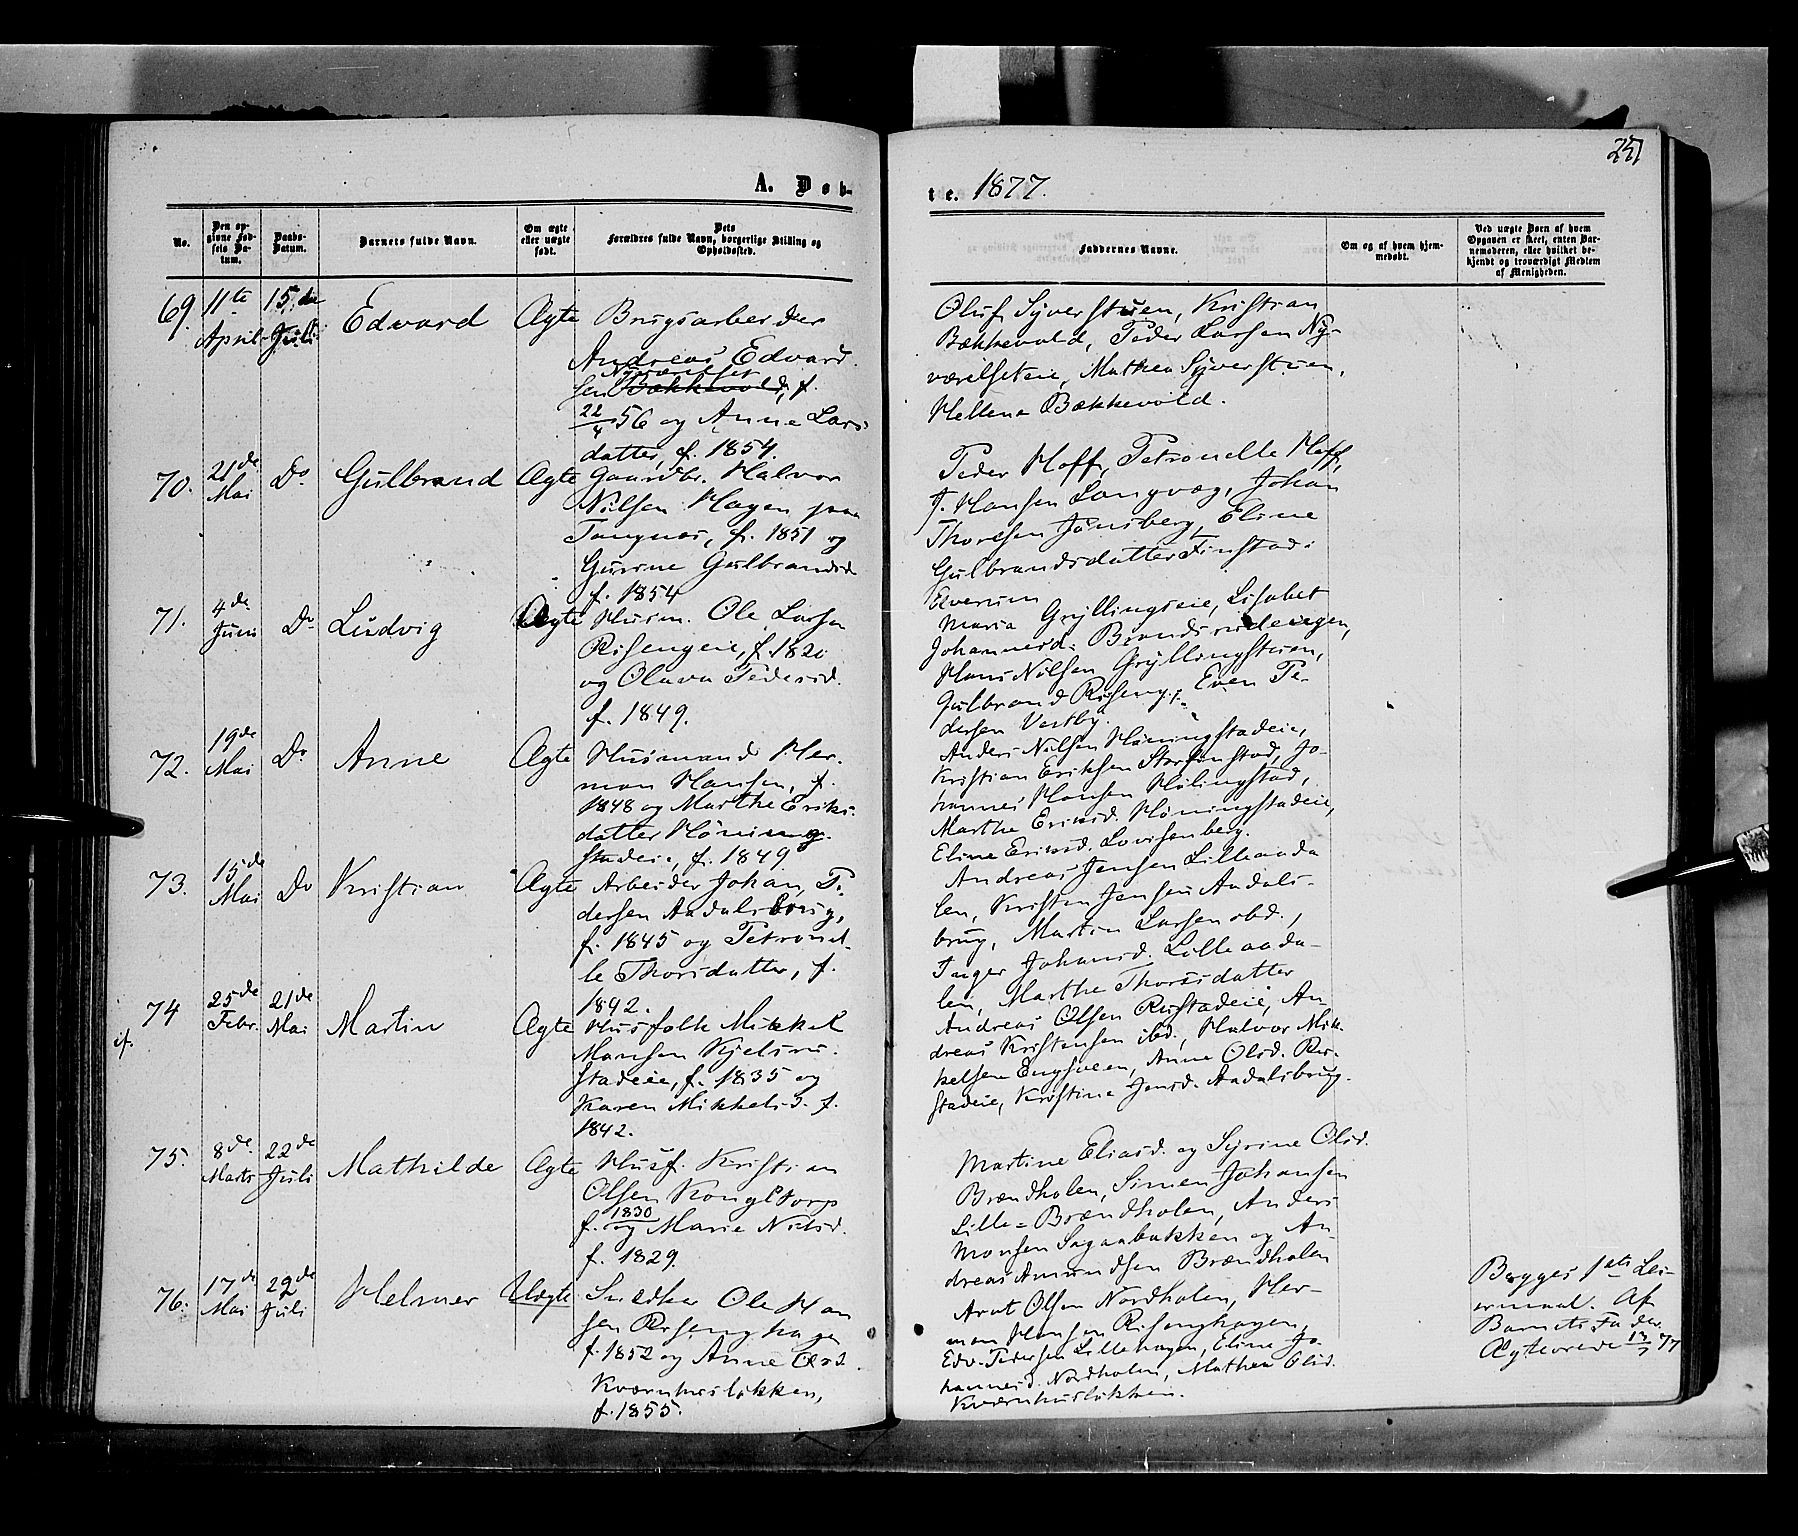 251
A. Døb-
te. 1877.
No.
Den opgivne Fødsels Datum.
Daabs-Datum.
Barnets fulde Navn.
Om ægte eller uægte født.
Dets Forældres fulde Navn, borgerlige Stilling og Opholdssted.
Faddernes Navne.
Om og af hvem hjemmedøbt.
Ved uægte Børn af hvem Opgaven er skeet, enten Barnemoderen, eller hvilket bekjendt og troværdigt Medlem af Menigheden.
69. 11te April 15. de Juli Edvard Ægte Brugsarbeider
Andreas Edvard-
sen Bækkevold, f.
22/4 56 og Anne Lars-
datter, f. 1854.
Oluf Syverstuen, Kristian
Bækkevold, Peder Larsen Ny-
værelseteie, Mathea Syverstuen,
Hellena Bækkevold.
70. 21de Mai Do Gulbrand Ægte Gaardbr. Halvor
Nilsen Hagen paa
Tangnæs, f. 1851 og
Gurine Gulbrandsd
f. 1854
Peder Hoff, Petronelle Hoff,
J. Hansen Langvæg, Johan
Thoresen Jønsberg, Eline
Gulbrandsdatter Finstad
Elverum
71. 4de Juni Do Ludvig Ægte Husm. Ole Larsen
Risengeie, f. 1820
og Olava Pedersd.
f. 1849.
Maria Gryllingseie, Lisabet
Johannesd. Brandsrudeiegen,
Hans Nilsen Gryllingstuen,
Gulbrand Riseng, Even Pe-
dersen Vestby.
72. 19de Mai Do Anne Ægte Husmand Her-
man Hansen, f.
1848 og Marthe Eriks-
datter Høning-
stadeie, f. 1849
Anders Nilsen Høningstadeie,
Kristian Eriksen Storfinstad, Jo-
hannes Hansen Hølingstad,
Marthe Eriksd. Høningstadeie,
Eline Eriksd. Lovisenberg.
73. 15de Mai Do Kristian Ægte Arbeider Johan Pe-
dersen Aadalsbrug,
f. 1845 og Petronel-
le Thorsdatter, f.
1842.
Andreas Jensen Lilleaada-
len, Kristen Jensen Aadals-
brug, Martin Larsen ibd.,
Inger Johansd. Lilleaada-
len, Marthe Thorsdatter
74 25de Febr. 21de Mai Martin Ægte Husfolk Mikkel
Hansen Kjelsru-
stadeie, f. 1835 og
Karen Mikkelsd. f.
1842.
Andreas Olsen Rustadeie, An-
dreas Kristensen ibd., Halvor Mik-
kelsen Engsveen, Anne Olsd. Ru-
stadeie, Kristine Jensd. Aadalsbrug.
75. 8de Marts 22de Juli Mathilde Ægte Husf. Kristian
Olsen Kongstorp
f. 1830 og Marie Nilsd.
f. 1829.
Martine Eliasd. og Syrine Olsd.
Brændholen, Simen Johansen
Lille-Brændholen, Anders
Monsen Sagaabakken og An-
dreas Amundsen Brændholen
76. 17de Mai 22de Juli Helmer Uægte Snedker Ole Han
sen Risenghagen
f. 1852 og Anne Olsd.
Kværnhusløkken,
f. 1855.
Arnt Olsen Nordholen, Her-
man Hansen Risenghagen,
Edv. Pedersen Lillehagen, Eline Jo-
hannesd. Nordholen, Mathea Olsd.
Kværnhusløkken.
Begges 1ste Lei-
ermaal. Af
Barnets Fader.
Ægteviede 13/7 77